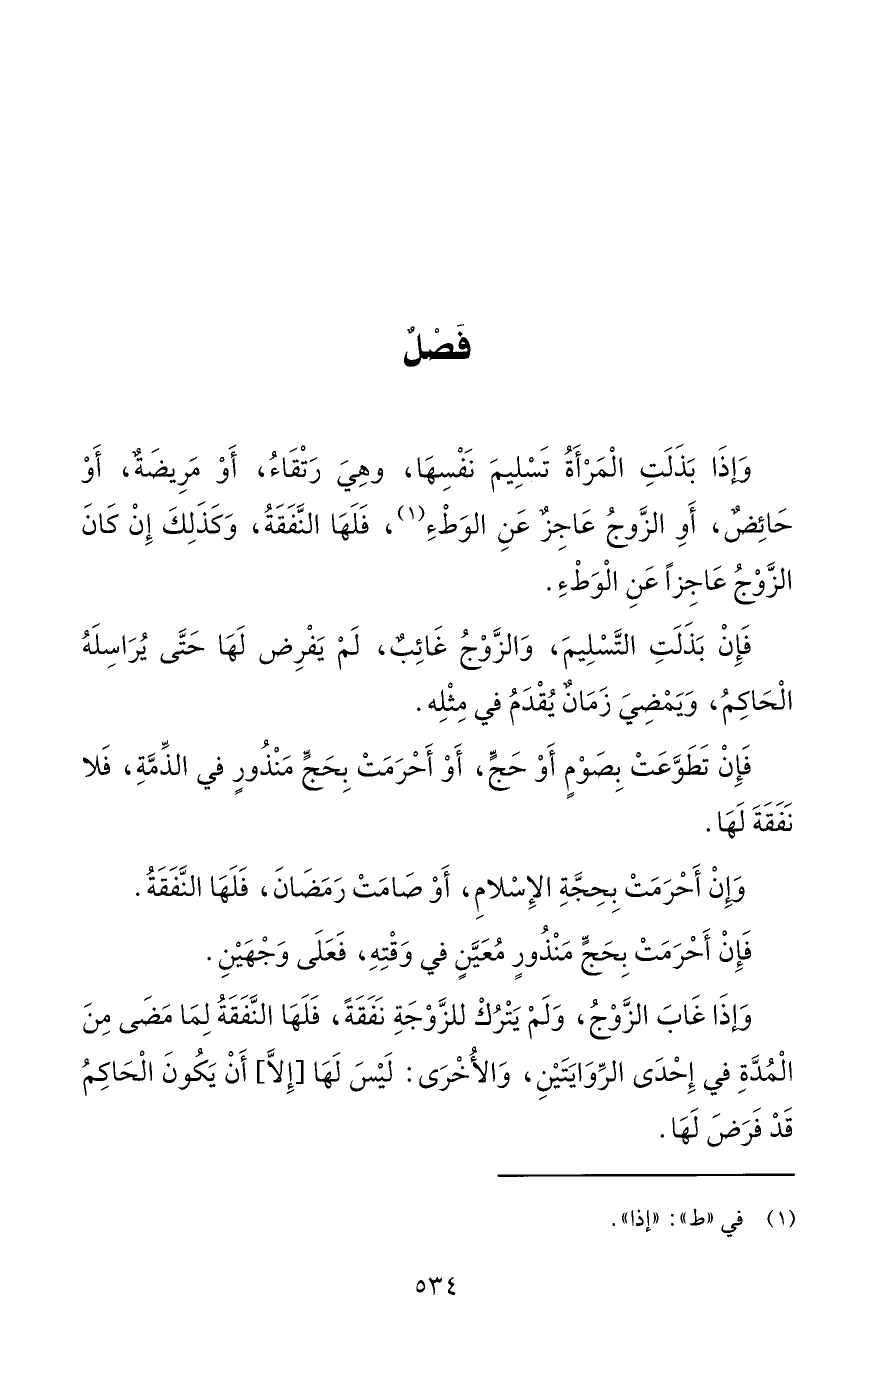 فَصْلٌ
وَإِذَا بَذَلَتِ الْمَرْأَةُ تَسْلِيمَ نَفْسِهَا، وهِيَ رَتْقَاءُ، أَوْ مَرِيضَةٌ، أَوْ
حَائِضٌ، أَوِ الزَّوجُ عَاجِزٌ عَنِ الوَطْءِ(١)، فَلَهَا النَّفَقَةُ، وَكَذَلِكَ إِنْ كَانَ
الزَّوْجُ عَاجِزاً عَنِ الْوَطْءِ.
فَإِنْ بَذَلَتِ التَّسْلِيمَ، وَالزَّوْجُ غَائِبٌ، لَمْ يَفْرِض لَهَا حَتَّى يُرَاسِلَهُ
الْحَاكِمُ، وَيَمْضِيَ زَمَانٌ يُقْدَمُ في مِثْلِه.
فَإِنْ تَطَوَّعَتْ بِصَوْمٍ أَوْ حَجٍّ، أَوْ أَحْرَمَتْ بِحَجٍّ مَنْذُورٍ في الذِّمَّةِ، فَلا
نَفَقَةَ لَهَا.
وَإِنْ أَحْرَمَتْ بِحِجَّةِ الإِسْلامِ، أَوْ صَامَتْ رَمَضَانَ، فَلَهَا النَّفَقَةُ.
فَإِنْ أَحْرَمَتْ بِحَجٍّ مَنْذُورٍ مُعَيَّنٍ في وَقْتِهِ، فَعَلَى وَجْهَيْنِ.
وَإِذَا غَابَ الزَّوْجُ، وَلَمْ يَتْرُكْ للزَّوْجَةِ نَفَقَةً، فَلَهَا النَّفَقَةُ لِمَا مَضَى مِنَ
الْمُدَّةِ في إِحْدَى الرِّوَايَتَيْنِ، وَالأُخْرَى: لَيْسَ لَهَا [إِلاَّ] أَنْ يَكُونَ الْحَاكِمُ
قَدْ فَرَضَ لَهَا.
(١) في «ط»: «إذا».
٥٣٤